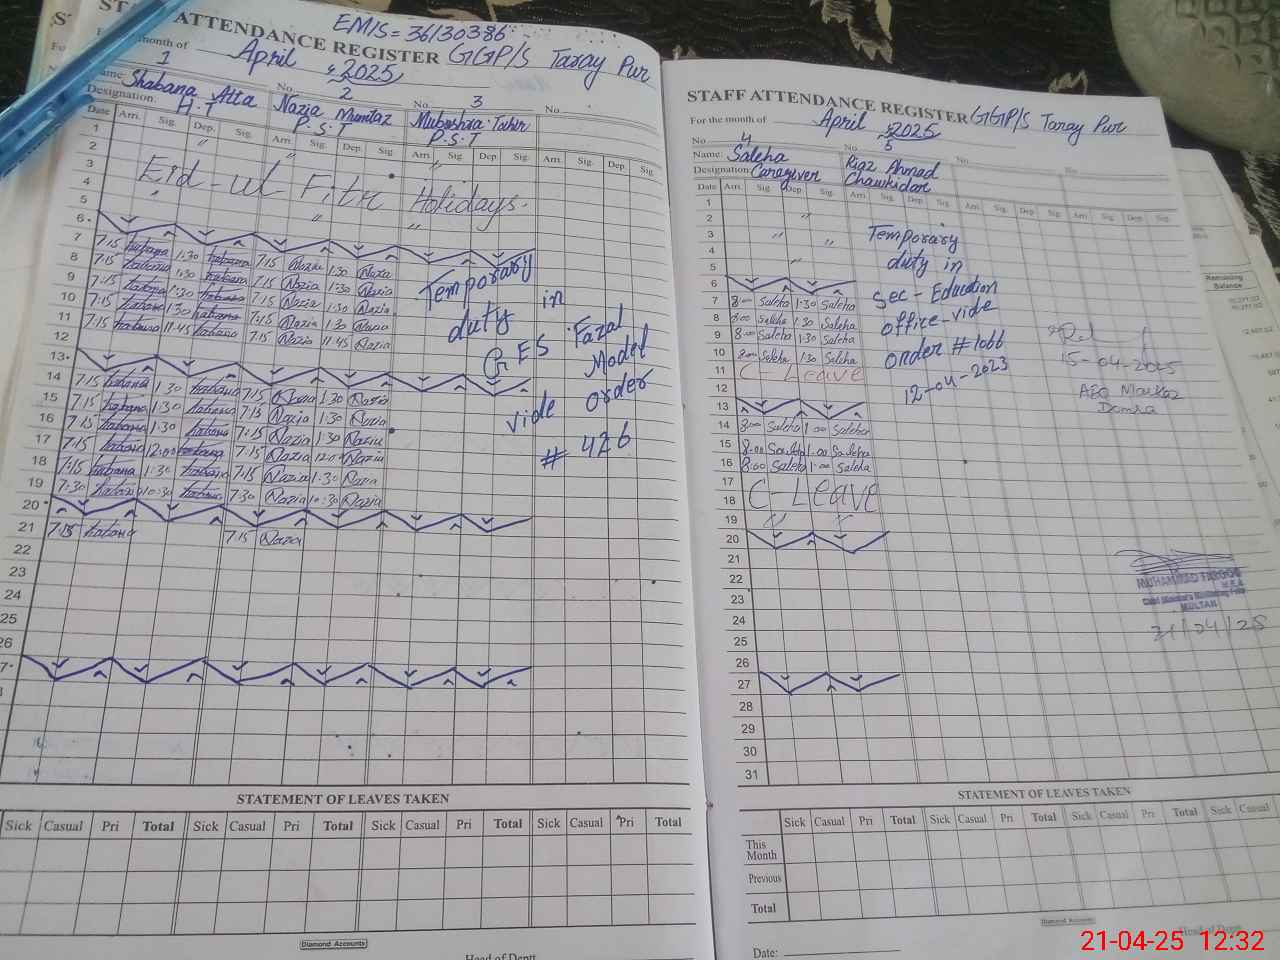 EMIS = 36130386
STAFF ATTENDANCE REGISTER GGP/S Taray Pur
month of April 2025
1 No. 2 No. 3 No.
Name: Shabana Atta Nazia Mumtaz Mubashra Tahir
Designation: H.T P.S.T P.S.T
Date Arr. Sig. Dep. Sig. Arr. Sig. Dep. Sig. Arr. Sig. Dep. Sig. Arr. Sig. Dep. Sig.
1
2
3
4
5
Eid-ul Fitr Holidays.
6
7 7:15 1:30 7:15 Nazia 1:30 Nazia
8 7:15 1:30 7:15 Nazia 1:30 Nazia
9 7:15 1:30 7:15 Nazia 1:30 Nazia
10 7:15 1:30 7:15 Nazia 1:30 Nazia
11 7:15 11:45 7:15 Nazia 11:45 Nazia
12
13
14 7:15 1:30 7:15 Nazia 1:30 Nazia
15 7:15 1:30 7:15 Nazia 1:30 Nazia
16 7:15 1:30 7:15 Nazia 1:30 Nazia
17 7:15 12:00 7:15 Nazia 12:00 Nazia
18 7:15 1:30 7:15 Nazia 1:30 Nazia
19 7:30 10:30 7:30 Nazia 10:30 Nazia
20
21 7:15 7:15 Nazia
22
23
24
25
26
Temporary
duty in
GES Fazal
Model
vide order
# 426
STATEMENT OF LEAVES TAKEN
Sick Casual Pri Total Sick Casual Pri Total Sick Casual Pri Total Sick Casual Pri Total
Diamond Accounts
Head of Deptt
STAFF ATTENDANCE REGISTER GGP/S Taray Pur
For the month of April 2025
No 4 No. 5 No. No.
Name: Saleha Riaz Ahmad
Designation: Caregiver Chawkidar
Date Arr. Sig. Dep. Sig. Arr. Sig. Dep. Sig. Arr. Sig. Dep. Sig. Arr. Sig. Dep. Sig.
1
2
3
4
5
6
7 8:00 Saleha 1:30 Saleha
8 8:00 Saleha 1:30 Saleha
9 8:00 Saleha 1:30 Saleha
10 8:00 Saleha 1:30 Saleha
11 C-Leave
12
13
14 8:00 Saleha 1:00 Saleha
15 8:00 Saleha 1:00 Saleha
16 8:00 Saleha 1:00 Saleha
17
18 C-Leave
19
20
21
22
23
24
25
26
27
28
29
30
31
Temporary
duty in
Sec-Education
office-vide
order # 1066
12-04-2023
15-04-2025
AEO Markaz
Domra
MUHAMMAD FAROOQ
M.E.A
MULTAN
21/04/25
Remaining
Balance
STATEMENT OF LEAVES TAKEN
Sick Casual Pri Total Sick Casual Pri Total Sick Casual Pri Total Sick Casual
This Month
Previous
Total
Diamond Accounts
Date:
Head of Deptt
21-04-25 12:32